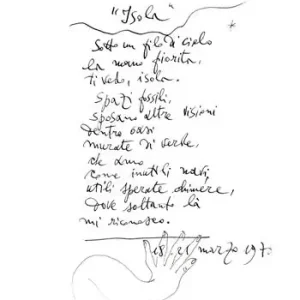 "Isola"
Sotto un filo di cielo
la mano fiorita,
ti vedo, isola.
Spazi fossili,
sposano altre visioni
dentro oasi
murate di verde,
che amo
come inutili navi,
utili sperate chimere,
dove soltanto là
mi riconosco.
18/21 marzo 197